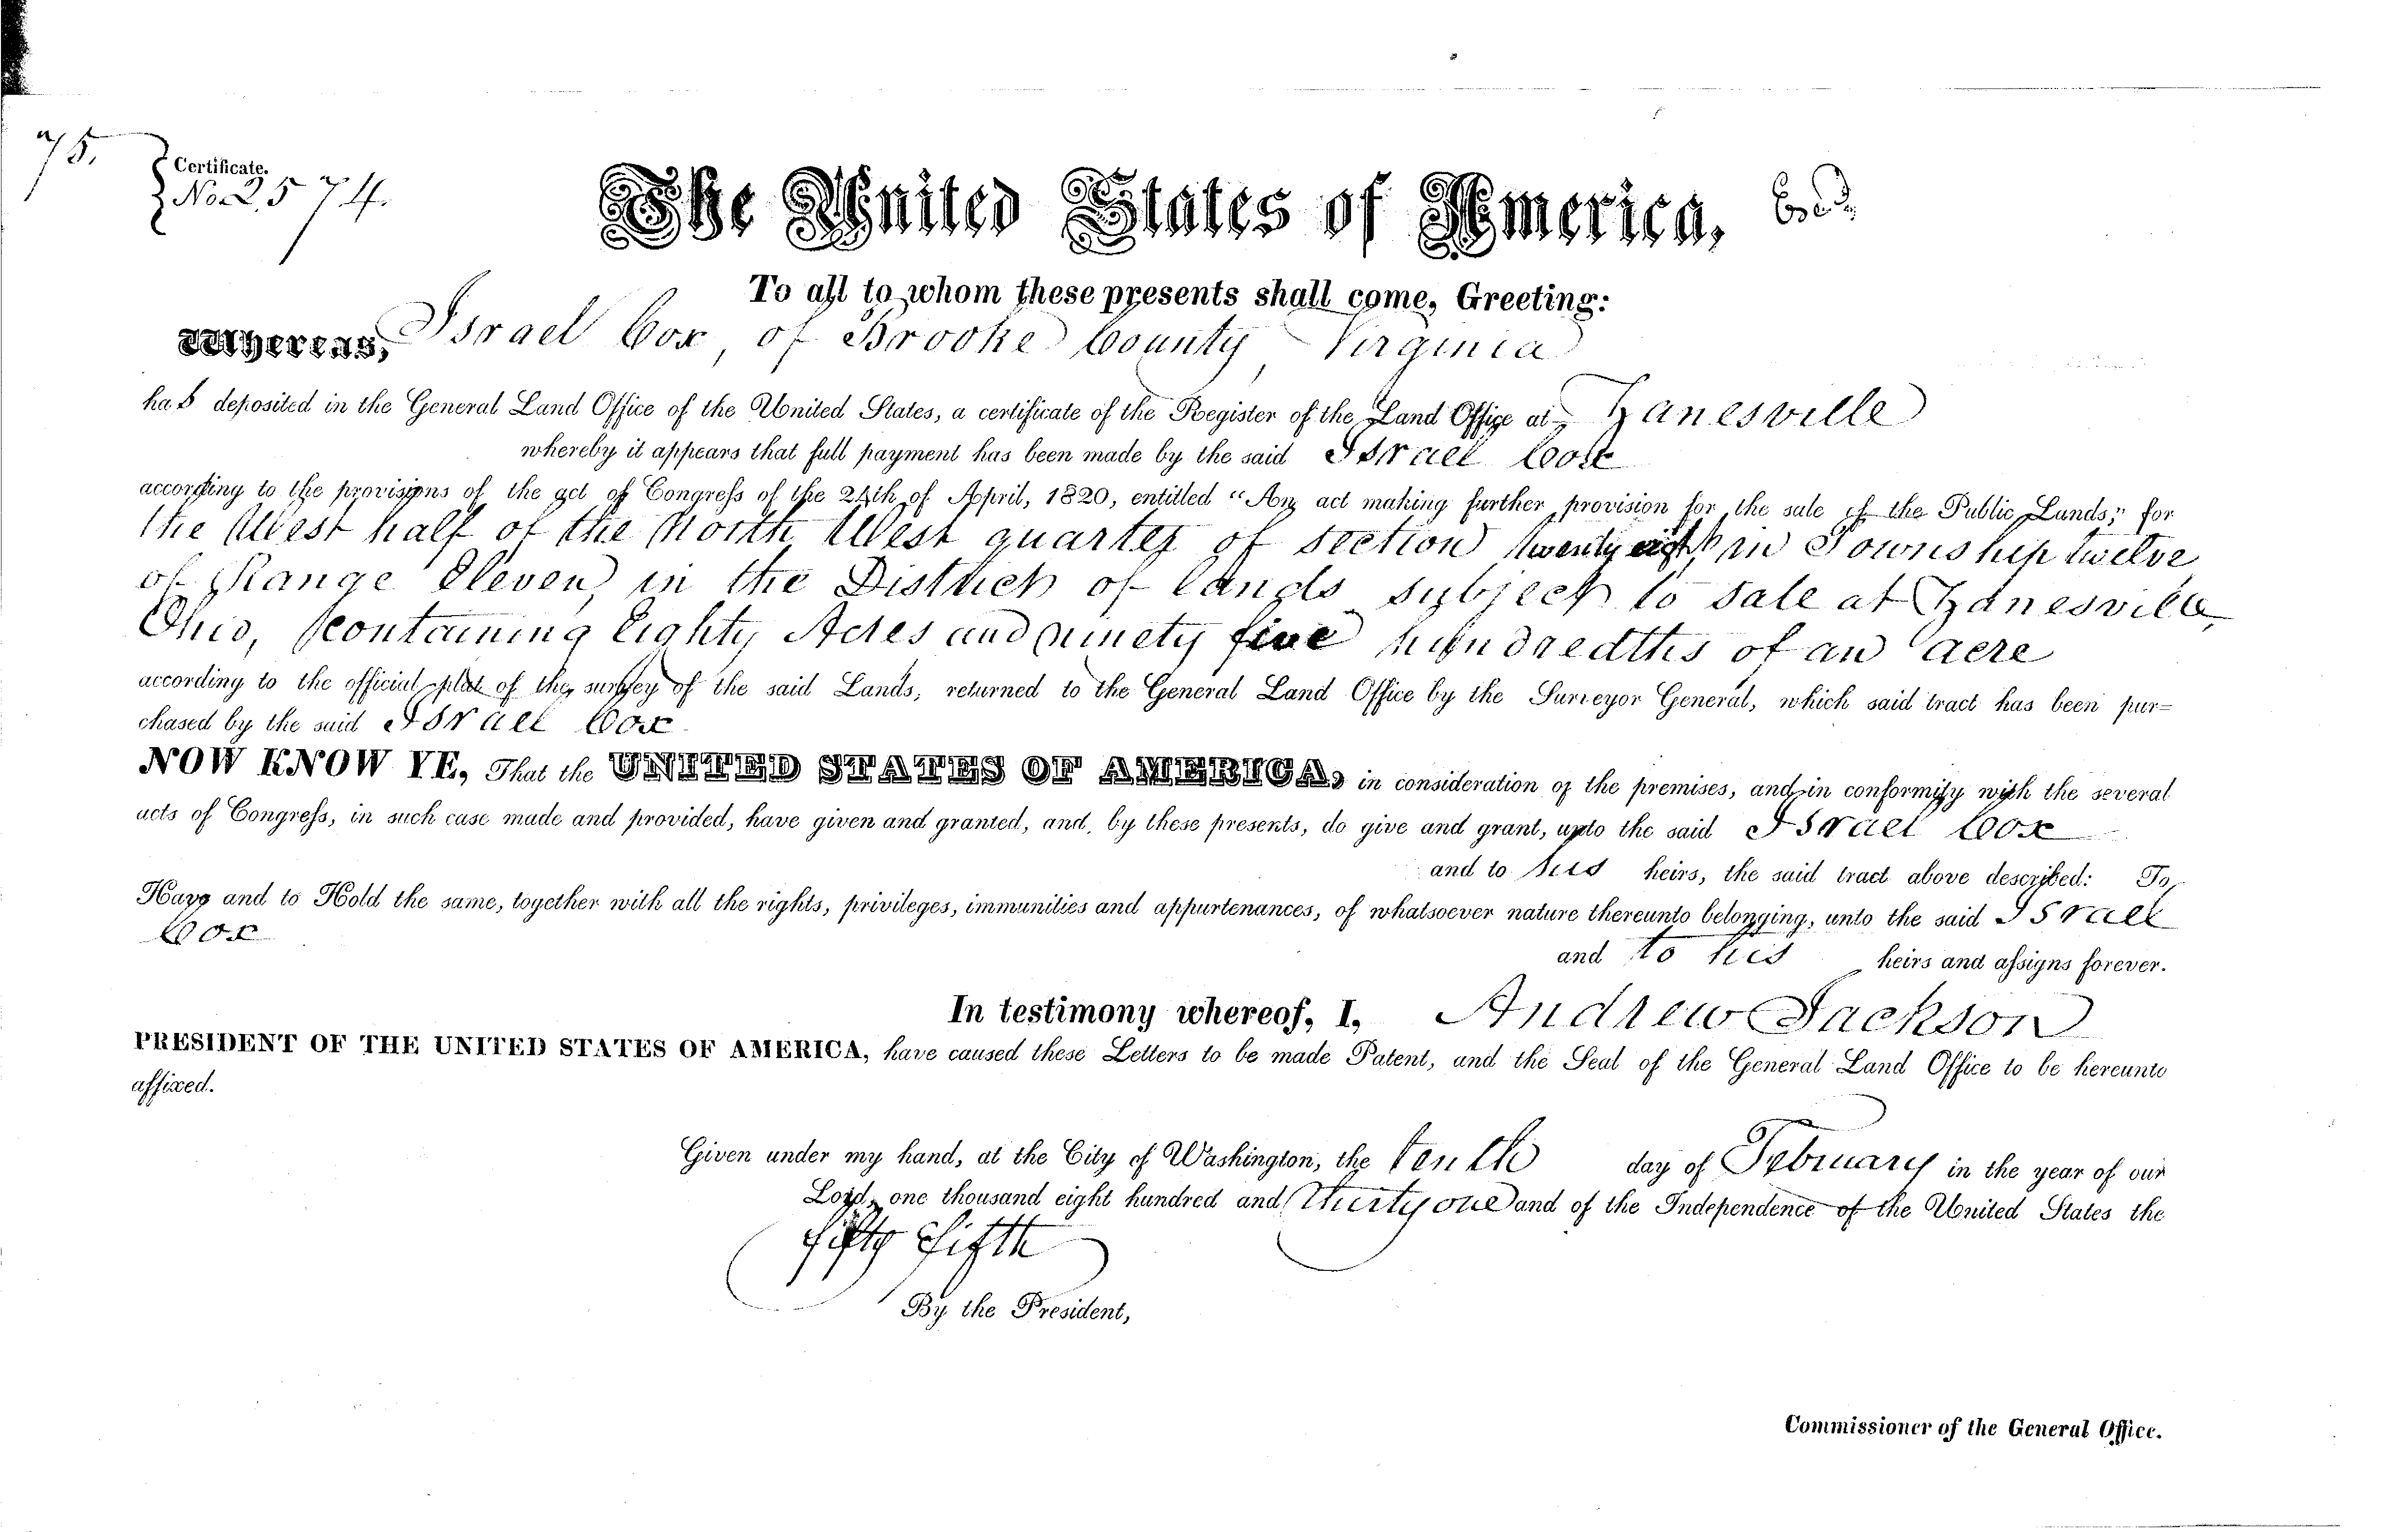 75.
Certificate.
No. 2574.
The United States of America,
To all to whom these presents shall come, Greeting:
Whereas, Israel Cox, of Brooke County, Virginia
has deposited in the General Land Office of the United States, a certificate of the Register of the Land Office at Zanesville
whereby it appears that full payment has been made by the said Israel Cox
according to the provisions of the act of Congress of the 24th of April, 1820, entitled "An act making further provision for the sale of the Public Lands," for
the West half of the North West quarter of Section twenty eight, in Township twelve
of Range Eleven, in the District of lands subject to sale at Zanesville,
Ohio, containing Eighty Acres and ninety five hundredths of an acre
according to the official plat of the survey of the said Lands, returned to the General Land Office by the Surveyor General, which said tract has been pur=
chased by the said Israel Cox
NOW KNOW YE, That the UNITED STATES OF AMERICA, in consideration of the premises, and in conformity with the several
acts of Congress, in such case made and provided, have given and granted, and, by these presents, do give and grant, unto the said Israel Cox
and to his heirs, the said tract above described: To
Have and to Hold the same, together with all the rights, privileges, immunities and appurtenances, of whatsoever nature thereunto belonging, unto the said Israel
Cox
and to his heirs and assigns forever.
In testimony whereof, I, Andrew Jackson
PRESIDENT OF THE UNITED STATES OF AMERICA, have caused these Letters to be made Patent, and the Seal of the General Land Office to be hereunto
affixed.
Given under my hand, at the City of Washington, the tenth day of February in the year of our
Lord, one thousand eight hundred and thirty one and of the Independence of the United States the
fifty fifth
By the President,
Commissioner of the General Office.